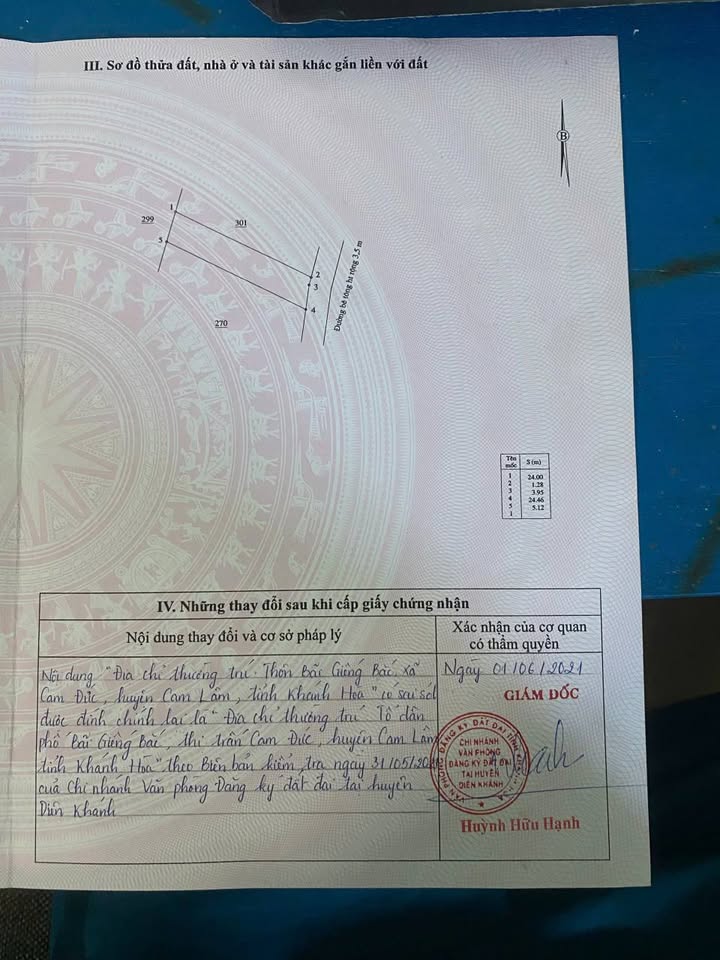 III. Sơ đồ thửa đất, nhà ở và tài sản khác gắn liền với đất
B
1
299
301
5
2
3
4
270
Đường bê tông xi rộng 3,5 m
Tên mốc S (m)
1 24.00
2 1.28
3 3.95
4 24.46
5 5.12
1
IV. Những thay đổi sau khi cấp giấy chứng nhận
Nội dung thay đổi và cơ sở pháp lý
Xác nhận của cơ quan
có thẩm quyền
Nội dung "Địa chỉ thường trú: Thôn Bãi Giếng Bắc, xã
Cam Đức, huyện Cam Lâm, tỉnh Khánh Hòa" có sai sót
được đính chính lại là "Địa chỉ thường trú: Tổ dân
phố Bãi Giếng Bắc, thị trấn Cam Đức, huyện Cam Lâm
tỉnh Khánh Hòa" theo Biên bản kiểm tra ngày 31/05/2021
của Chi nhánh Văn phòng Đăng ký đất đai tại huyện
Diên Khánh
Ngày 01/06/2021
GIÁM ĐỐC
VĂN PHÒNG ĐĂNG KÝ ĐẤT ĐAI TỈNH
CHI NHÁNH
VĂN PHÒNG
ĐĂNG KÝ ĐẤT ĐAI
TẠI HUYỆN
DIÊN KHÁNH
Huỳnh Hữu Hạnh